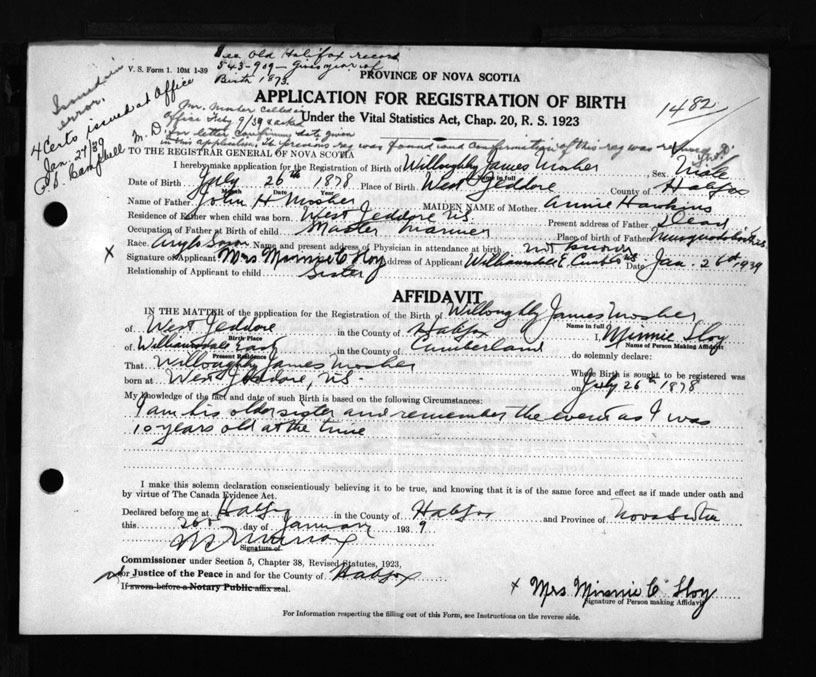 See Old Halifax record
V. S. Form 1. 10M 1-39
543-909 – Gives year of
Birth 1873.
Issued in
error.
4 Certs issued at Office
Jan. 27/39
Campbell M. D.
PROVINCE OF NOVA SCOTIA
APPLICATION FOR REGISTRATION OF BIRTH
1482
Under the Vital Statistics Act, Chap. 20, R. S. 1923
Mr. Mosher called in
Office Feby 9/39 & asked
for letter confirming date given
in this application. The previous reg was found and confirmation of this reg was refused
TO THE REGISTRAR GENERAL OF NOVA SCOTIA
I hereby make application for the Registration of Birth of Willoughby James Mosher Name in full Sex Male
Date of Birth July 26th 1878 Month Date Year Place of Birth West Jeddore County of Halifax
Name of Father John H Mosher MAIDEN NAME of Mother Annie Hawkins
Residence of Father when child was born. West Jeddore N.S. Present address of Father Dead
Occupation of Father at Birth of child Master Mariner Place of birth of Father Musquodoboit
Race. Anglo Saxon Name and present address of Physician in attendance at birth not known
x Signature of Applicant Mrs Minnie C Sloy Address of Applicant Williamsdale E. Cumb Co NS Date Jan. 26th, 1939
Relationship of Applicant to child Sister
AFFIDAVIT
IN THE MATTER of the application for the Registration of the Birth of Willoughby James Mosher
Name in full
of West Jeddore in the County of Halifax I, Minnie Sloy
Birth Place Name of Person Making Affidavit
of Williamsdale East in the County of Cumberland do solemnly declare:
Present Residence
That Willoughby James Mosher Whose Birth is sought to be registered was
born at West Jeddore, N.S. on July 26th 1878
My knowledge of the fact and date of such Birth is based on the following Circumstances:
I am his older sister and remember the event as I was
10 years old at the time
I make this solemn declaration conscientiously believing it to be true, and knowing that it is of the same force and effect as if made under oath and
by virtue of The Canada Evidence Act.
Declared before me at Halifax in the County of Halifax and Province of Nova Scotia
this 26th day of January 1939
Signature of
Commissioner under Section 5, Chapter 38, Revised Statutes, 1923,
or Justice of the Peace in and for the County of Halifax
If sworn before a Notary Public affix seal.
x Mrs. Minnie C Sloy
Signature of Person making Affidavit
For Information respecting the filling out of this Form, see Instructions on the reverse side.